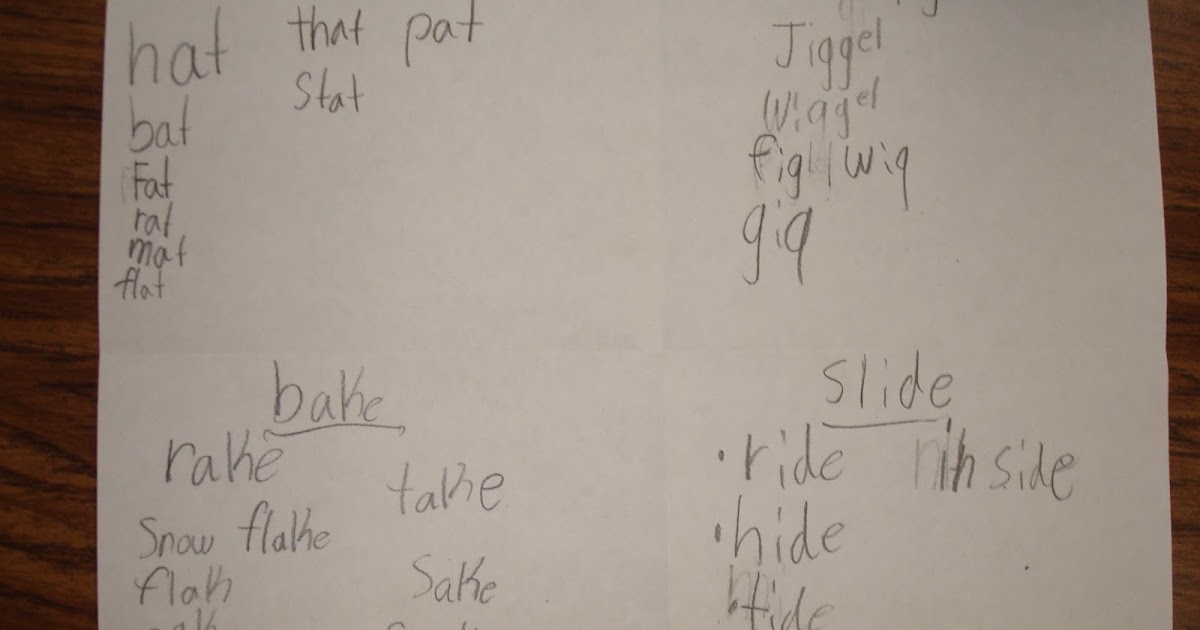 hat that pat
Stat
bat
Fat
rat
mat
flat
Jiggel
Wiggel
fig wig
gig
bake
rake
take
Snow flake
flak
Sake
slide
• ride in side
• hide
• tide